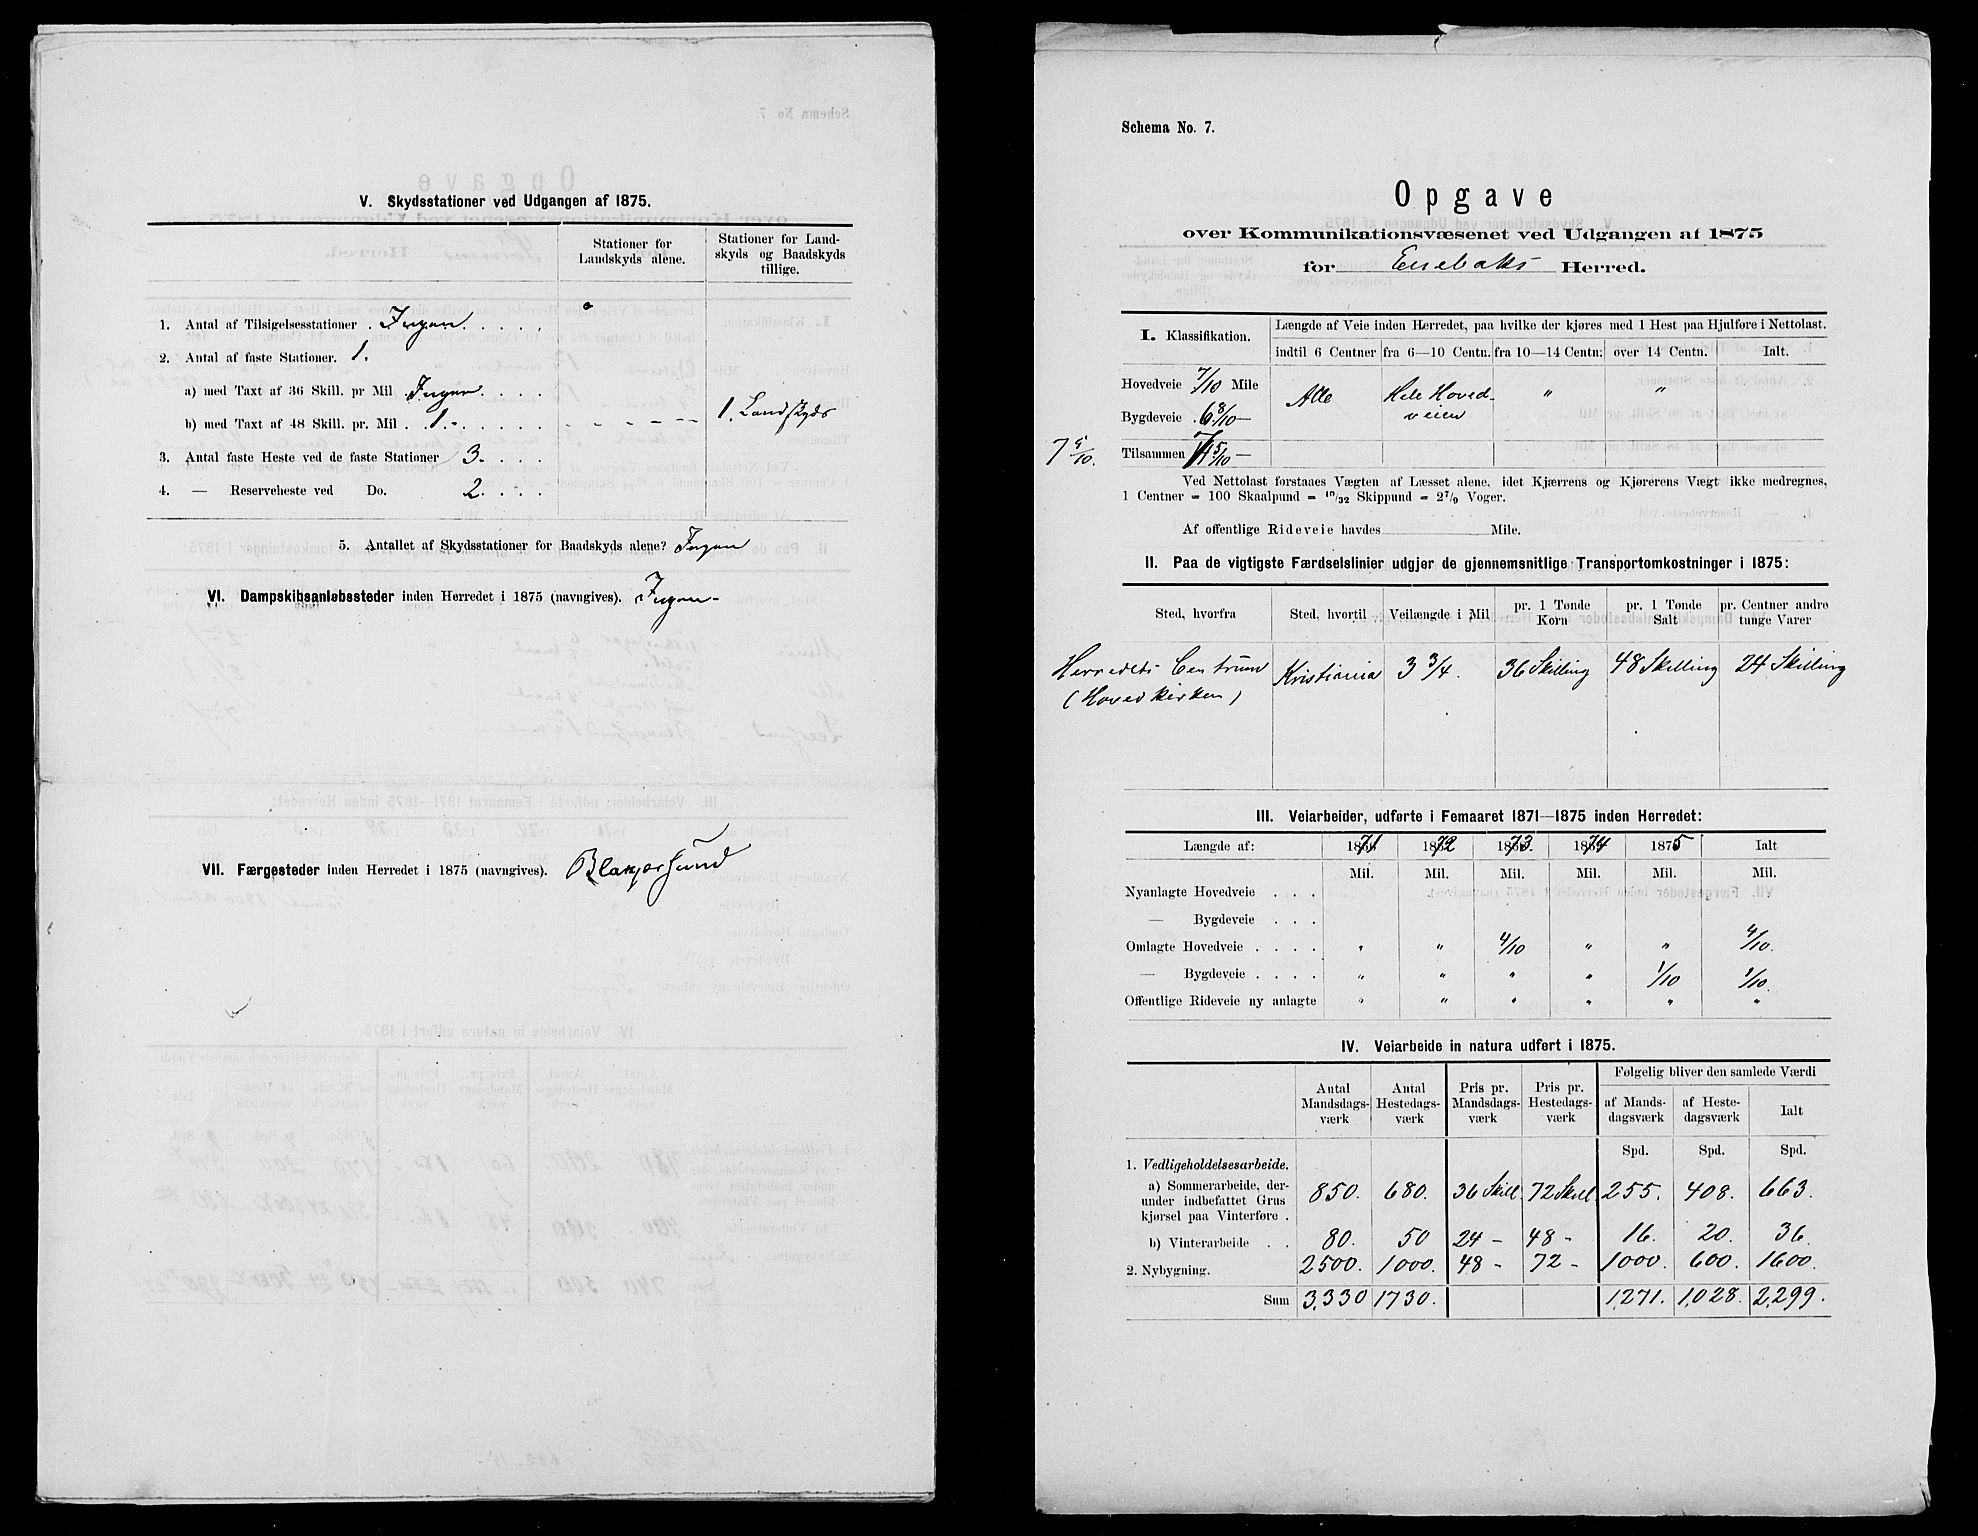 V. Skydsstationer ved Udgangen af 1875.
Stationer for Landskyds alene.
Stationer for Land-skyds og Baadskyds tillige.
1. Antal af Tilsigelsesstationer . Ingen. . . . .
2. Antal af faste Stationer. 1.
a) med Taxt af 36 Skill. pr Mil . Ingen . . . .
b) med Taxt af 48 Skill. pr. Mil . . 1. - . . . . 1. Landskyds
3. Antal faste Heste ved de faste Stationer 3. . . .
4. — Reserveheste ved Do. 2. . . .
5. Antallet af Skydsstationer for Baadskyds alene? Ingen
VI. Dampskibsanløbssteder inden Herredet i 1875 (navngives). Ingen -
VII. Færgesteder inden Herredet i 1875 (navngives). Blakjersund
Schema No. 7.
Opgave
over Kommunikationsvæsenet ved Udgangen af 1875
for Enebaks Herred.
I. Klassifikation.
Længde af Veie inden Herredet, paa hvilke der kjøres med 1 Hest paa Hjulføre i Nettolast.
indtil 6 Centner fra 6—10 Centn. fra 10—14 Centn: over 14 Centn. Ialt.
Hovedveie 7/10 Mile Alle Hele Hoved- " "
Bygdeveie . 6 8/10 — veien
7 5/10. Tilsammen 7 5/10 —
Ved Nettolast forstaaes Vægten af Læsset alene, idet Kjærrens og Kjørerens Vægt ikke medregnes,
1 Centner = 100 Skaalpund = 10/32 Skippund = 2 7/9 Voger.
Af offentlige Rideveie havdes Mile.
II. Paa de vigtigste Færdselslinier udgjør de gjennemsnitlige Transportomkostninger i 1875:
Sted, hvorfra Sted, hvortil Veilængde i Mil pr. 1 Tønde Korn pr. 1 Tønde Salt pr. Centner andre tunge Varer
Herredets Centrum Kristiania 3 3/4. 36 Skilling 48 Skilling 24 Skilling
(Hovedkirken)
III. Veiarbeider, udførte i Femaaret 1871—1875 inden Herredet:
Længde af: 1871 1872 1873. 1874 1875 Ialt
Mil. Mil. Mil. Mil. Mil. Mil.
Nyanlagte Hovedveie . . . .
— Bygdeveie . . .
Omlagte Hovedveie . . . . " " 4/10 " " 4/10.
— Bygdeveie . . . . " " " " 1/10 1/10.
Offentlige Rideveie ny anlagte " " " " " "
IV. Veiarbeide in natura udført i 1875.
Antal Mandsdags-værk
Antal Hestedags-værk
Pris pr. Mandsdags-værk
Pris pr. Hestedags-værk
Følgelig bliver den samlede Værdi
af Mands-dagsværk
af Heste-dagsværk
Ialt
Spd. Spd. Spd.
1. Vedligeholdelsesarbeide.
a) Sommerarbeide, der-
under indbefattet Grus
kjørsel paa Vinterføre . 850. 680. 36 Skill. 72 Skill 255. 408. 663.
b) Vinterarbeide . . 80. 50 24 - 48 - 16. 20. 36.
2. Nybygning. 2500. 1000. 48 - 72 - 1000. 600. 1600.
Sum 3,330 1730. 1,271. 1,028. 2,299.